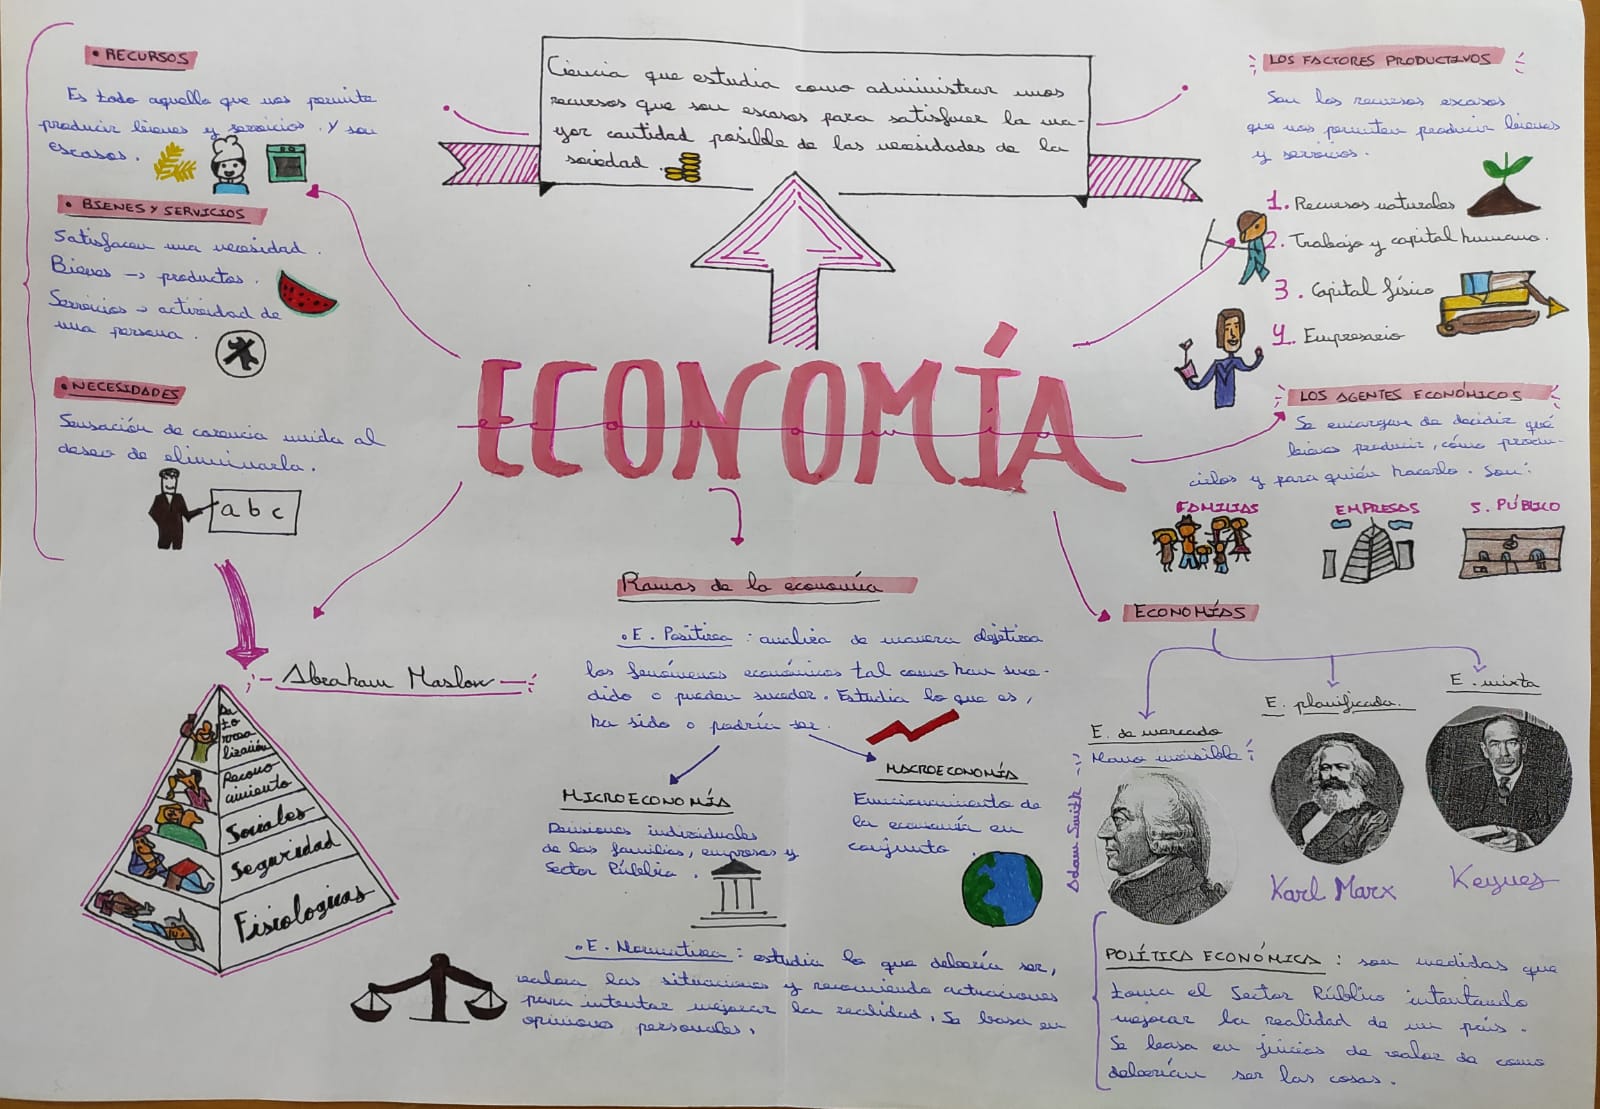 • RECURSOS
Es todo aquello que nos permite
producir bienes y servicios. Y son
escasos.
• BIENES Y SERVICIOS
Satisfacen una necesidad.
Bienes → productos.
Servicios → actividad de
una persona.
• NECESIDADES
Sensación de carencia unida al
deseo de eliminarla.
a b c
Ciencia que estudia como administrar unos
recursos que son escasos para satisfacer la ma-
yor cantidad posible de las necesidades de la
sociedad.
ECONOMÍA
economía
LOS FACTORES PRODUCTIVOS
Son los recursos escasos
que nos permiten producir bienes
y servicios.
1. Recursos naturales
2. Trabajo y capital humano.
3. Capital físico
4. Empresario
LOS AGENTES ECONÓMICOS
Se encargan de decidir qué
bienes producir, cómo produ-
cirlos y para quién hacerlo. Son:
FAMILIAS
EMPRESAS
S. PÚBLICO
Abraham Maslow
Autorrea
lización
Recono
cimiento
Sociales
Seguridad
Fisiologicas
Ramas de la economía
• E. Positiva : analiza de manera objetiva
los fenómenos económicos tal como han suce-
dido o pueden suceder. Estudia lo que es,
ha sido o podría ser.
MICROECONOMÍA
Decisiones individuales
de las familias, empresas y
Sector Público.
MACROECONOMÍA
Funcionamiento de
la economía en
conjunto.
• E. Normativa : estudia lo que debería ser,
valora las situaciones y recomienda actuaciones
para intentar mejorar la realidad. Se basa en
opiniones personales.
ECONOMÍAS
E. de mercado
Mano invisible
Adam Smith
E. planificada.
Karl Marx
E. mixta
Keynes
POLÍTICA ECONÓMICA : son medidas que
toma el Sector Público intentando
mejorar la realidad de un país.
Se basa en juicios de valor de como
deberían ser las cosas.